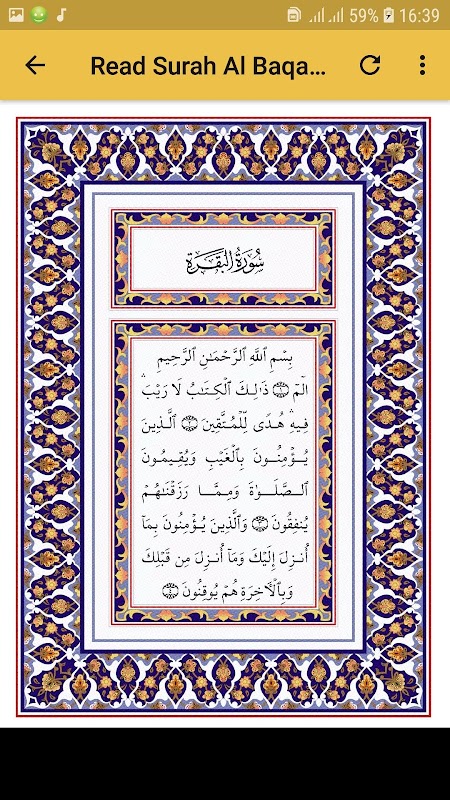 59% 16:39
Read Surah Al Baqa...
سُورَةُ البَقَرَةِ
بِسْمِ ٱللَّهِ ٱلرَّحْمَـٰنِ ٱلرَّحِيمِ
الٓمٓ ۝١ ذَٰلِكَ ٱلْكِتَـٰبُ لَا رَيْبَ ۛ
فِيهِ ۛ هُدًى لِّلْمُتَّقِينَ ۝٢ ٱلَّذِينَ
يُؤْمِنُونَ بِٱلْغَيْبِ وَيُقِيمُونَ
ٱلصَّلَوٰةَ وَمِمَّا رَزَقْنَـٰهُمْ
يُنفِقُونَ ۝٣ وَٱلَّذِينَ يُؤْمِنُونَ بِمَآ
أُنزِلَ إِلَيْكَ وَمَآ أُنزِلَ مِن قَبْلِكَ
وَبِٱلْـَٔاخِرَةِ هُمْ يُوقِنُونَ ۝٤